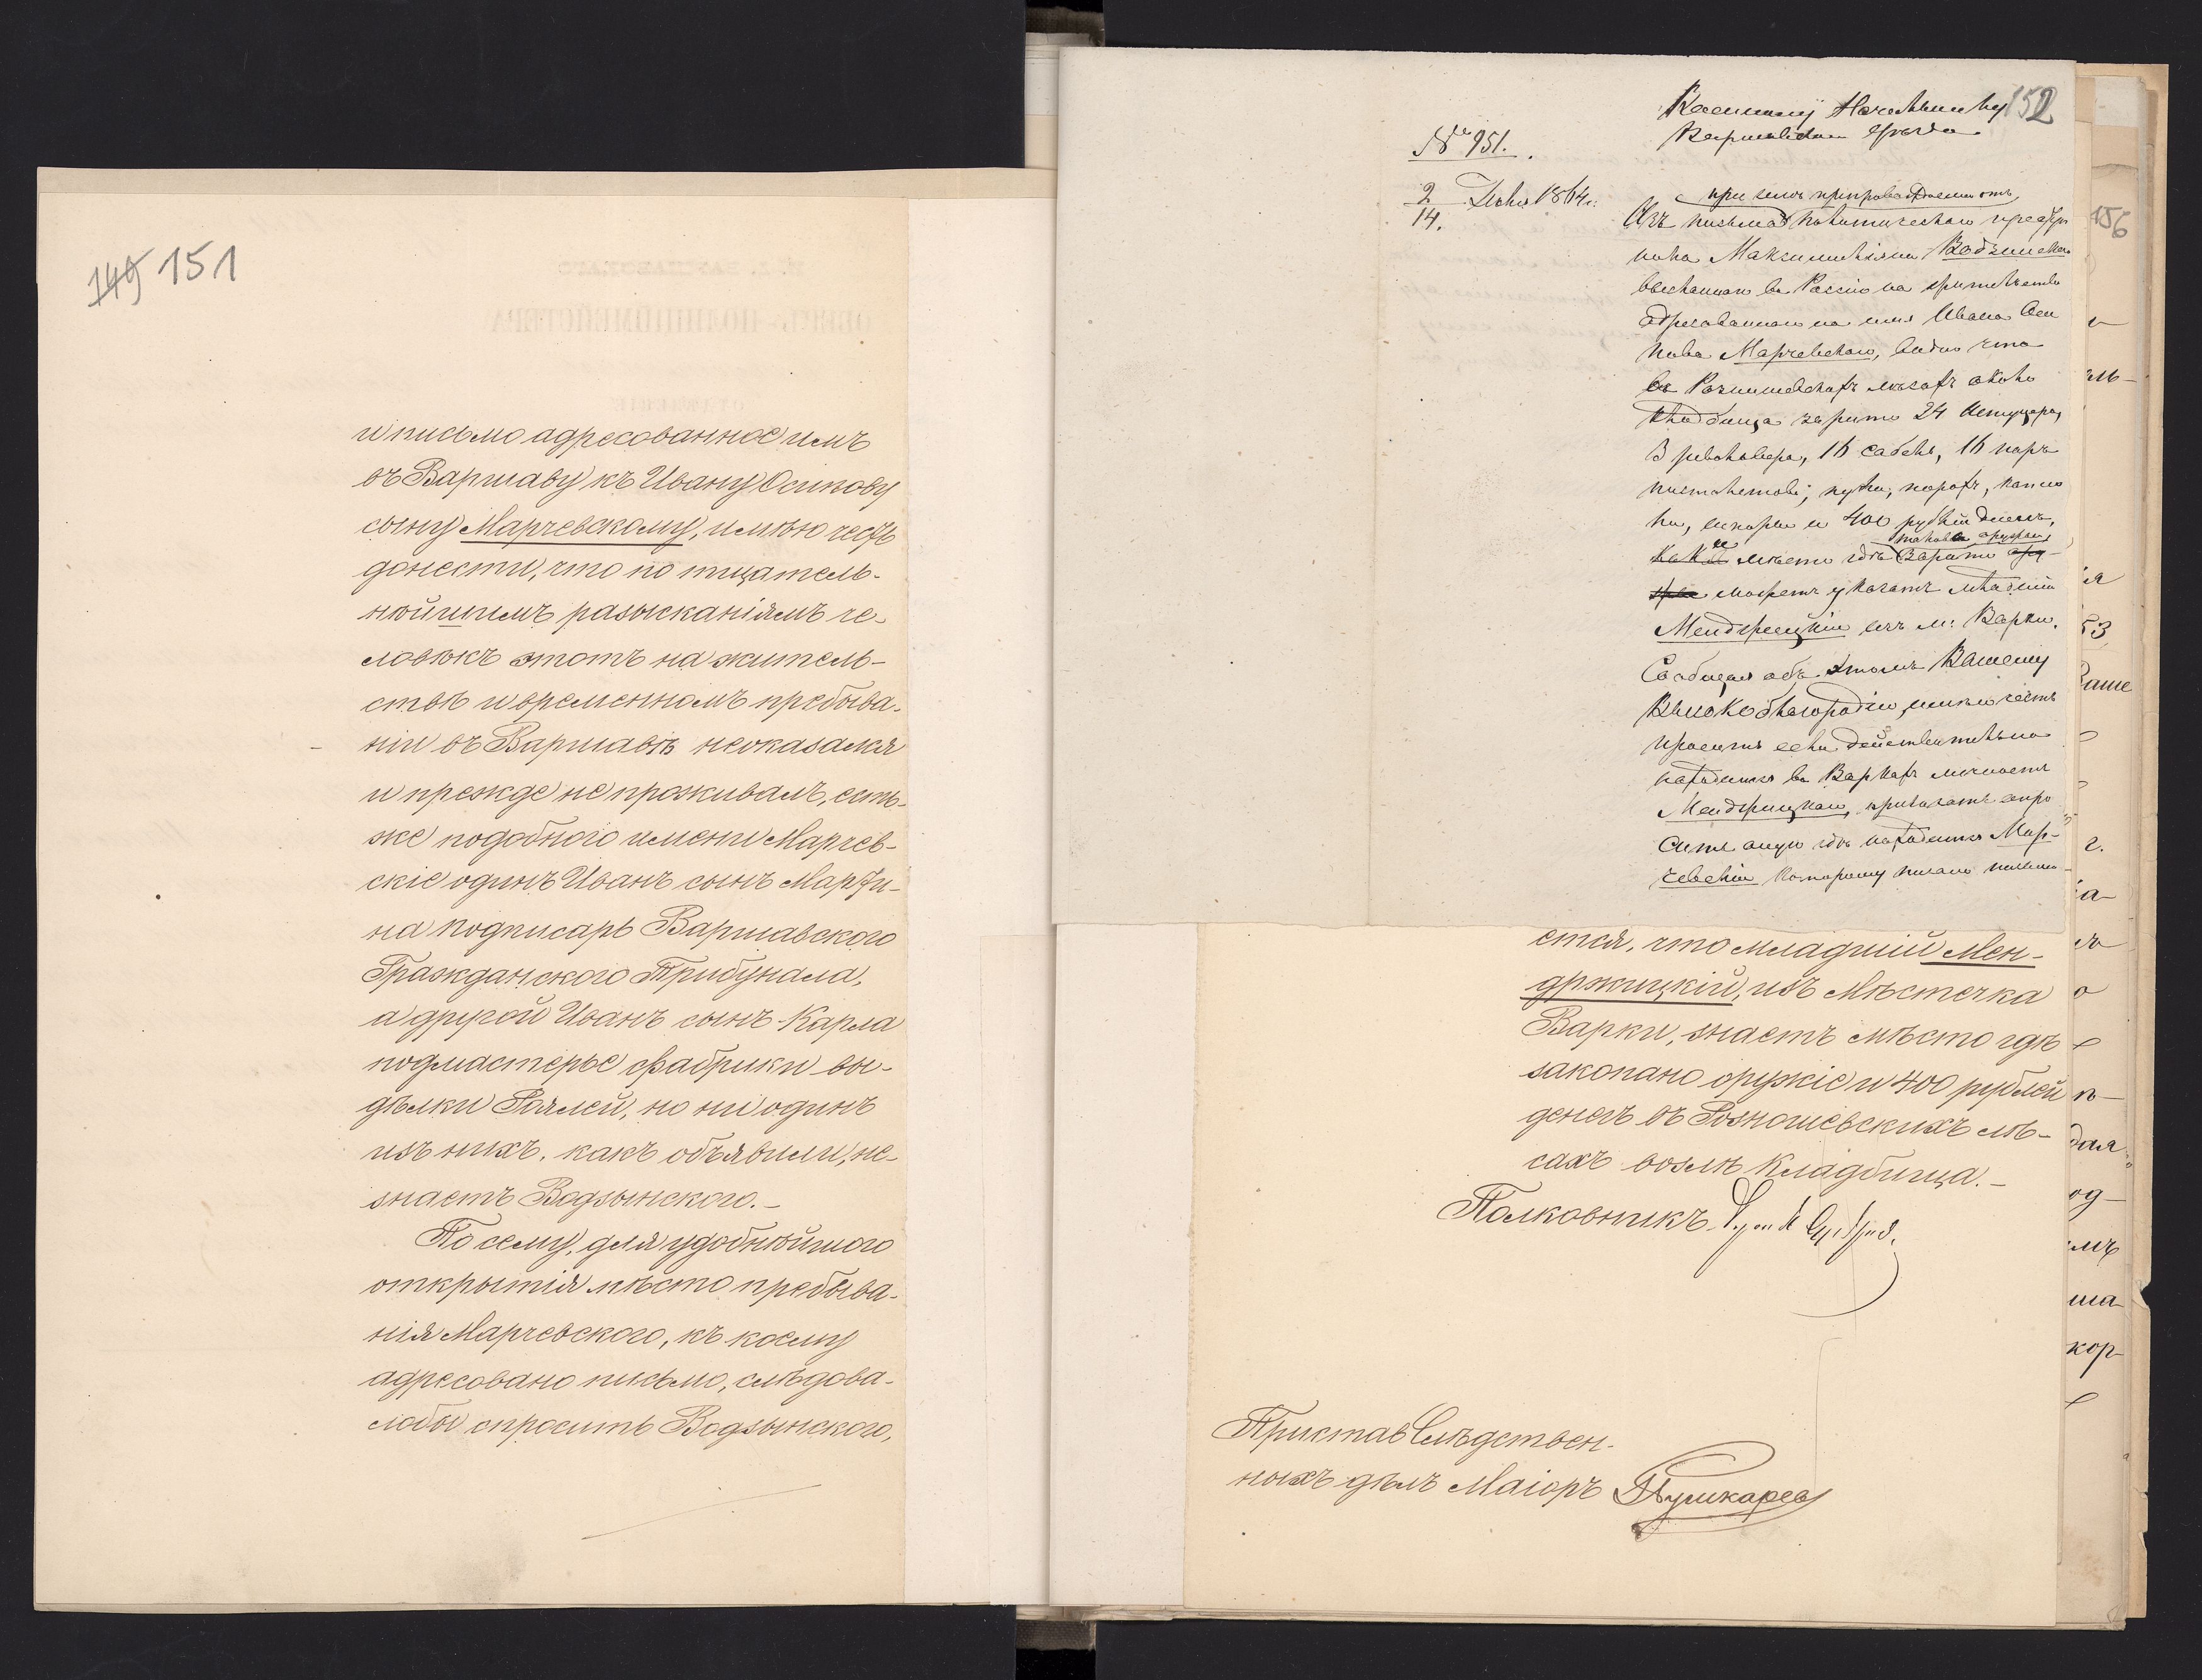 149 151
и письмо адресованное имъ
въ Варшаву къ Ивану Осипову
сыну Марчевскому, имѣю честь
донести, что по тщатель-
нѣйшимъ разысканіямъ че-
ловѣкъ этотъ на житель-
ствѣ и временномъ пребыва-
ніи въ Варшавѣ неоказался
и прежде не проживалъ, есть-
же подобного имени Марчев-
скіе одинъ Иванъ сынъ Марти-
на подписарь Варшавского
Гражданского Трибунала,
а другой Иванъ сынъ Карла
подмастерье фабрики вы-
дѣлки Роялей, но ни одинъ
изъ нихъ, какъ объявили, не-
знаетъ Водзынского.-
По сему, для удобнѣйшого
открытія мѣсто пребыва-
нія Марчевского, къ коему
адресовано письмо, слѣдова-
лобы спросить Водзынского,
152
Военному Начальнику
Варшавскаго уѣзда
№ 951.
2
14. Іюля 1864 г.
при семъ препровождаемаго
Изъ письма политическаго преступ
ника Максимиліяна Водзинскаго
высланнаго въ Россію на жительство
адресованнаго на имя Ивана Оси
пова Марчевскаго, видно что
въ лѣсахъ около
кладбища зарыто 24 штуцера,
3 револьвера, 16 сабель, 16 паръ
пистолетовъ, пули, порохъ,
и 400 рублей денегъ,
мѣсто гдѣ зарыто
можетъ указать младшій
Мендржецкій изъ м. Варки.
Сообщая объ этомъ Вашему
Высокоблагородію, имѣю честь
просить если дѣйствительно
находится въ Варкахъ
Мендржицкаго, приказать спро
сить онаго гдѣ находится Мар-
чевскій которому писано письмо
156
ется, что младшій Мен-
држицкій, изъ Мѣстечка
Варки, знаетъ мѣсто гдѣ
закопано оружіе и 400 рублей
денегъ въ Розношевскихъ лѣ-
сахъ возлѣ Кладбища.-
Полковникъ
Приставъ Слѣдствен-
ныхъ дѣлъ Маіоръ Пушкаревъ